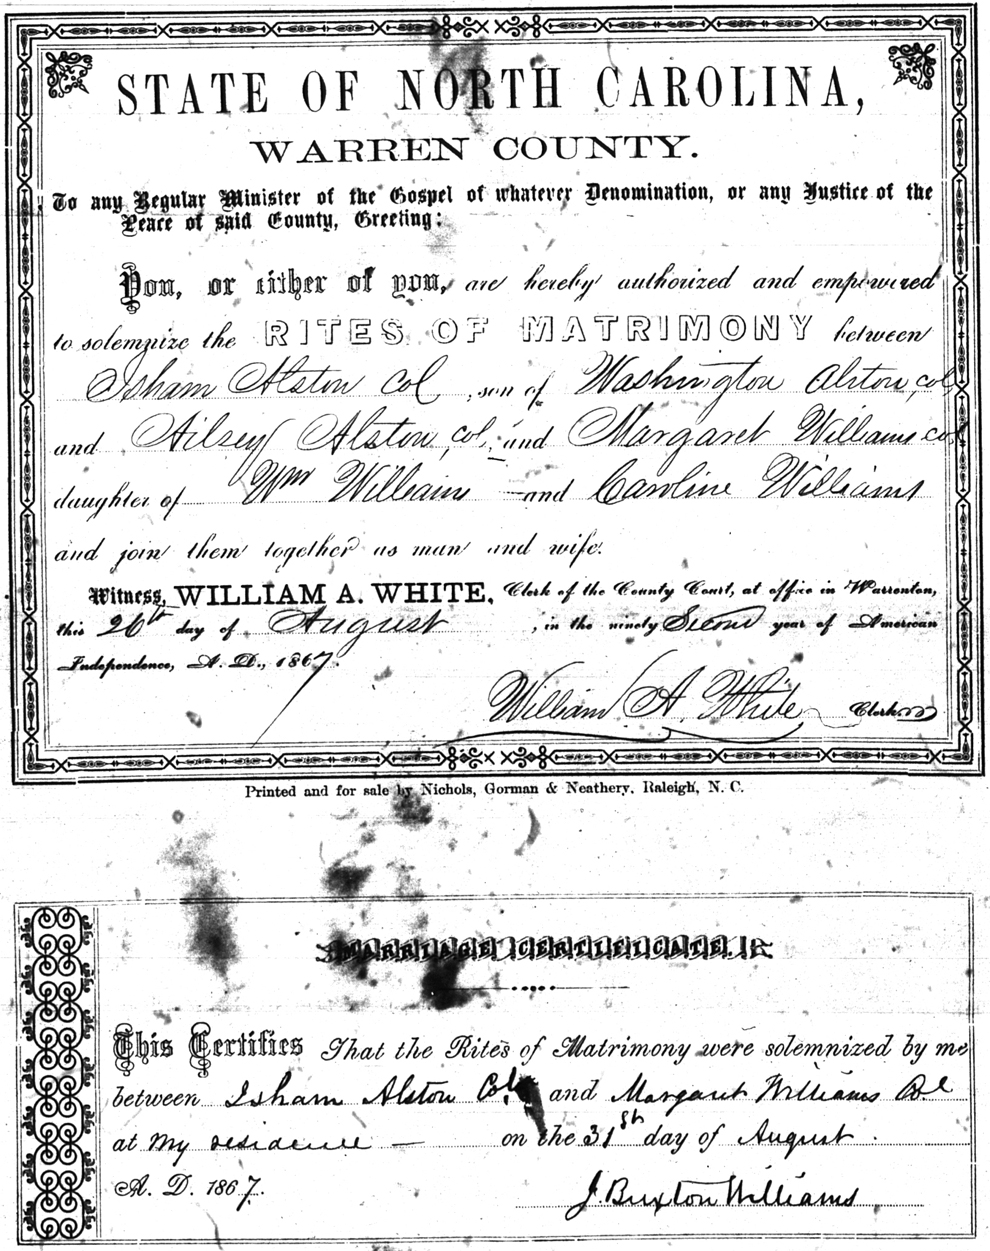 STATE OF NORTH CAROLINA,
WARREN COUNTY.
To any Regular Minister of the Gospel of whatever Denomination, or any Justice of the
Peace of said County, Greeting:
You, or either of you, are hereby authorized and empowered
to solemnize the RITES OF MATRIMONY between
Isham Alston Col, son of Washington Alston, col,
and Ailsey Alston, col, and Margaret Williams col
daughter of Wm Williams — and Caroline Williams
and join them together as man and wife.
Witness, WILLIAM A. WHITE, Clerk of the County Court, at office in Warrenton,
this 26th day of August, in the ninety Second year of American
Independence, A. D., 1867.
William A. White Clerk
Printed and for sale by Nichols, Gorman & Neathery, Raleigh, N. C.
MARRIAGE CERTIFICATE.
This Certifies That the Rites of Matrimony were solemnized by me
between Isham Alston Col. and Margaret Williams Col
at my residence — on the 31st day of August.
A. D. 1867.
J. Buxton Williams